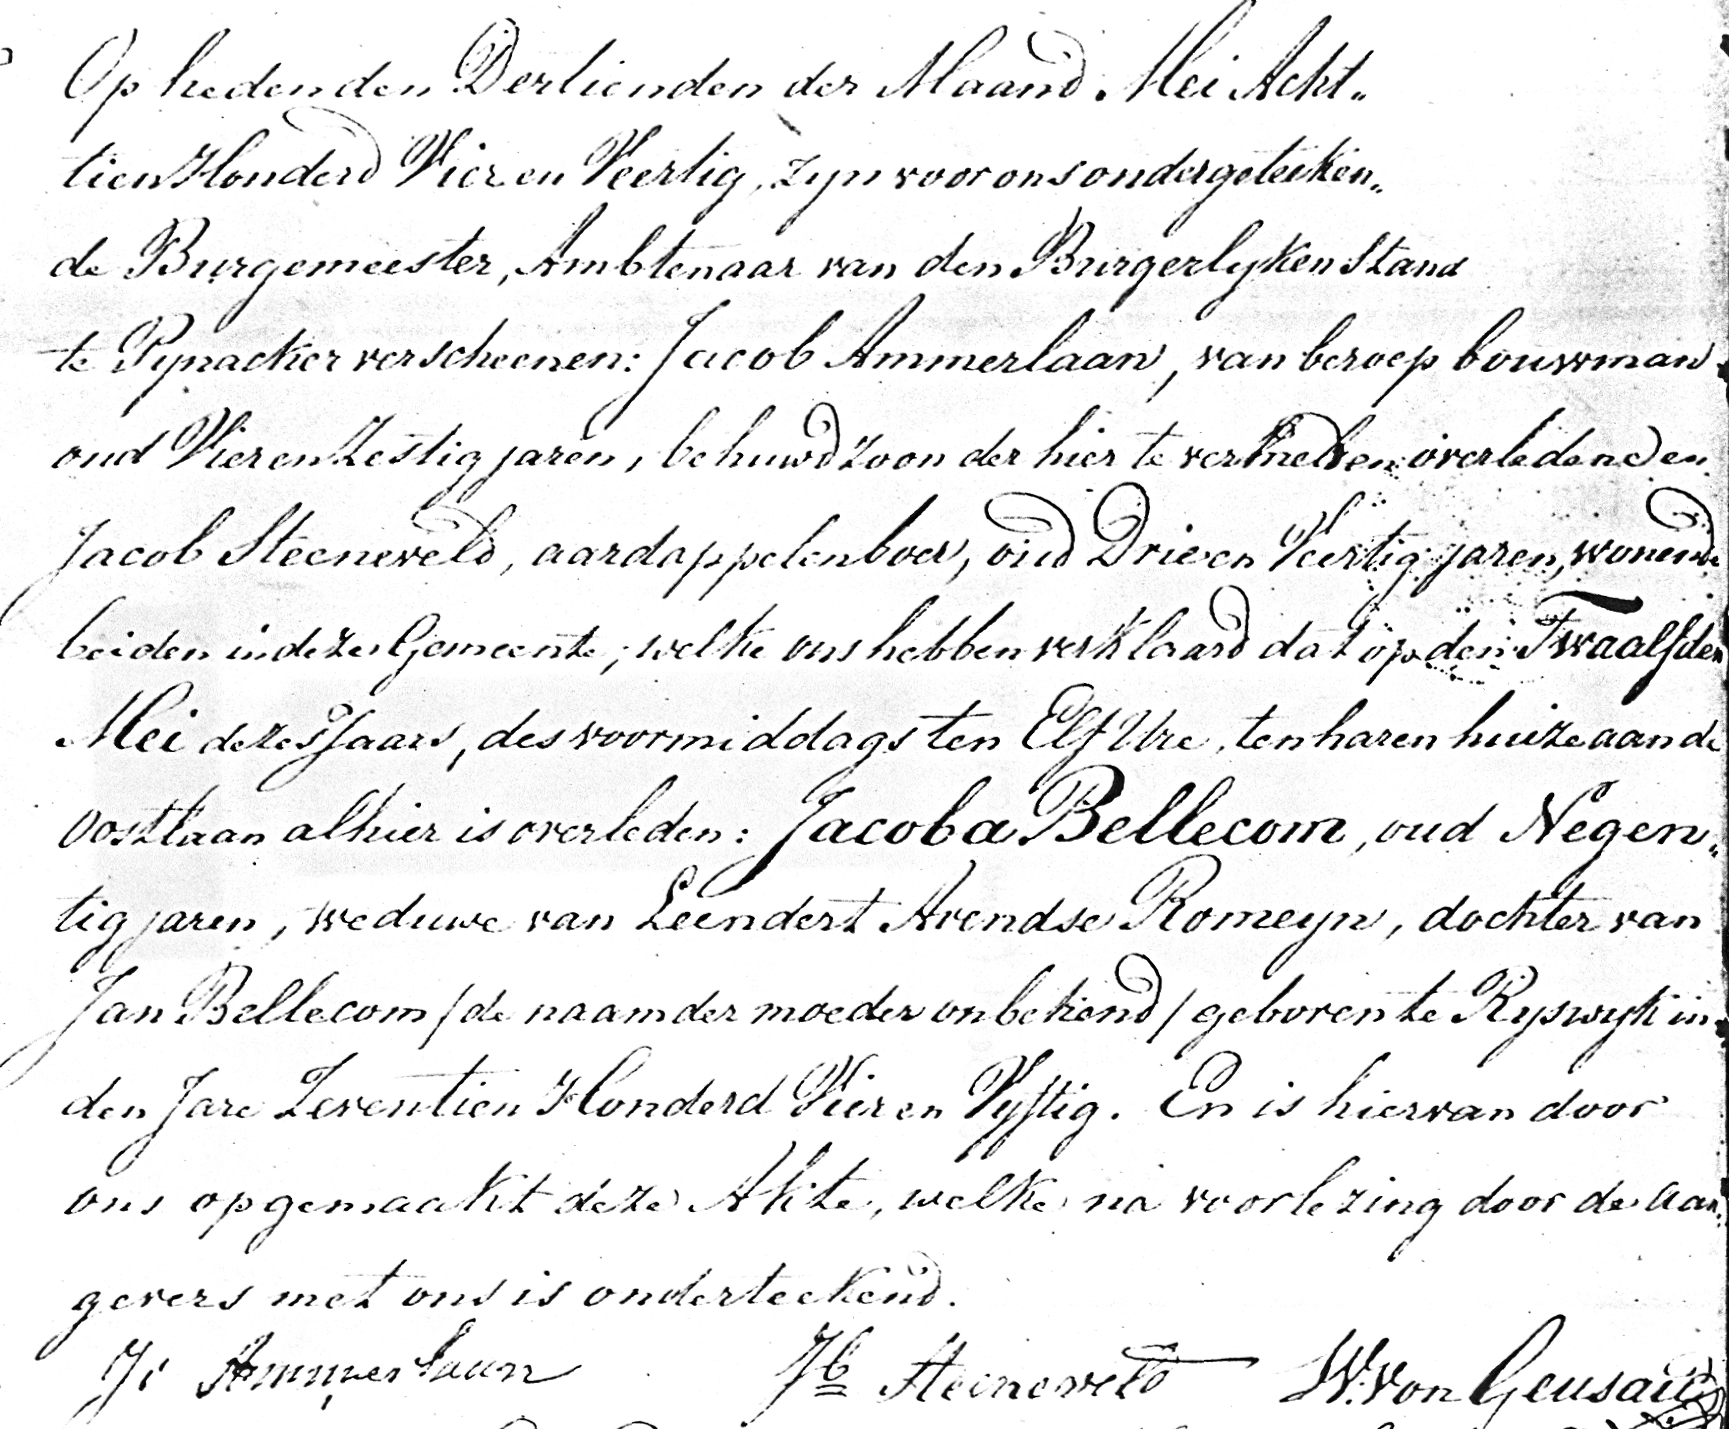 Op heden den Dertienden der Maand Mei Acht„
tien Honderd Vier en Veertig, zyn voor ons ondergeteeken„
de Burgemeester, Ambtenaar van den Burgerlyken Stand
te Pynacker verscheenen: Jacob Ammerlaan, van beroep bouwman
oud Vier en Zestig jaren, behuwd zoon der hier te vermelden overledene en
Jacob Steeneveld, aardappelenboer, oud Drie en Veertig jaren, wonende
beiden in deze Gemeente; welke ons hebben verklaard dat op den Twaalfden
Mei dezes Jaars, des voormiddags ten Elf Ure, ten haren huize aan de
Oostlaan alhier is overleden: Jacoba Bellecom, oud Negen„
tig jaren, weduwe van Leendert Arendse Romeyn, dochter van
Jan Bellecom /de naam der moeder onbekend/ geboren te Ryswyk in
den Jare Zeventien Honderd Vier en Vyftig. En is hiervan door
ons opgemaakt deze Akte, welke na voorlezing door de aan„
gevers met ons is onderteekend.
Js Ammerlaan Jb Steeneveld W. von Geusau